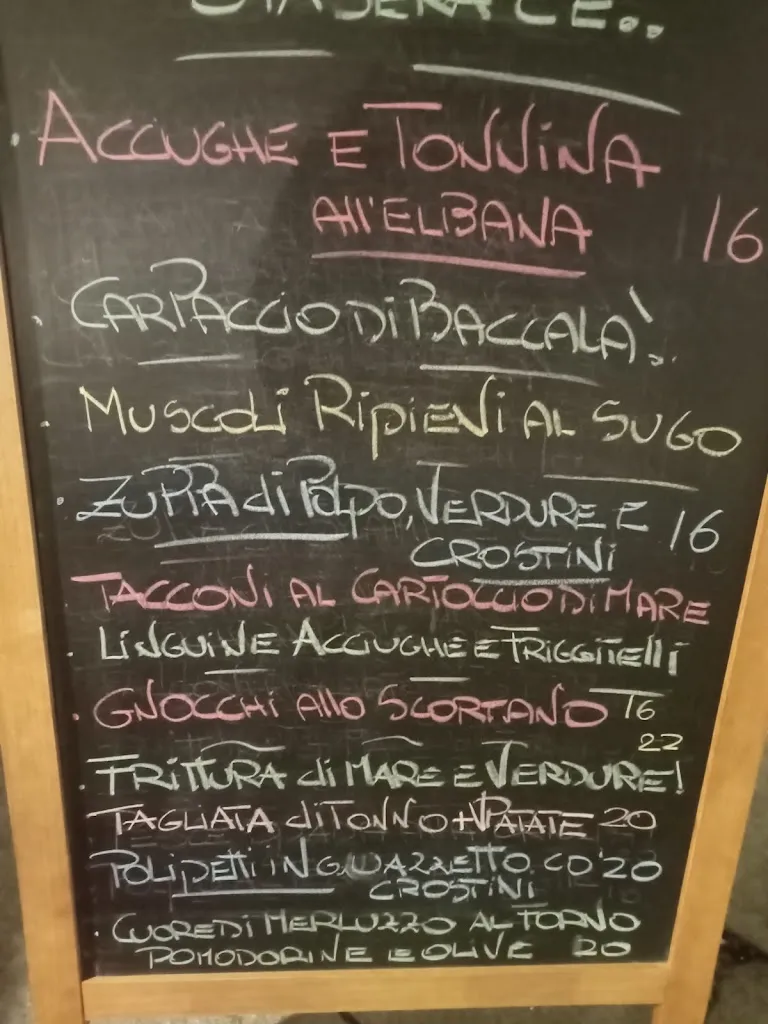 STASERA C'È..
ACCIUGHE E TONNINA
All'ELBANA 16
CARPACCIO Di BACCALÀ.
MUSCOLi RipiENi AL SUGO
ZUPPA di Polpo, VERDURE E 16
CROSTiNi
TACCONi AL CARTOCCIO Di MARE
LiNGUiNE ACCiUGHE E FRiGGiTElli
GNOCCHi Allo SCORFANO 16
22
FRiTTURA di MARE E VERDURE!
TAGLIATA di TONNO + PATATE 20
POLiPETTi iN GUAZZETTO CO' 20
CROSTiNi
CUORE Di MERLUZZO AL FORNO
POMODORiNE E OLiVE 20